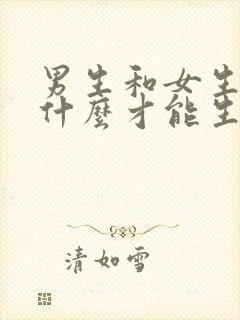 男生和女生
什麼才能生
清如雪